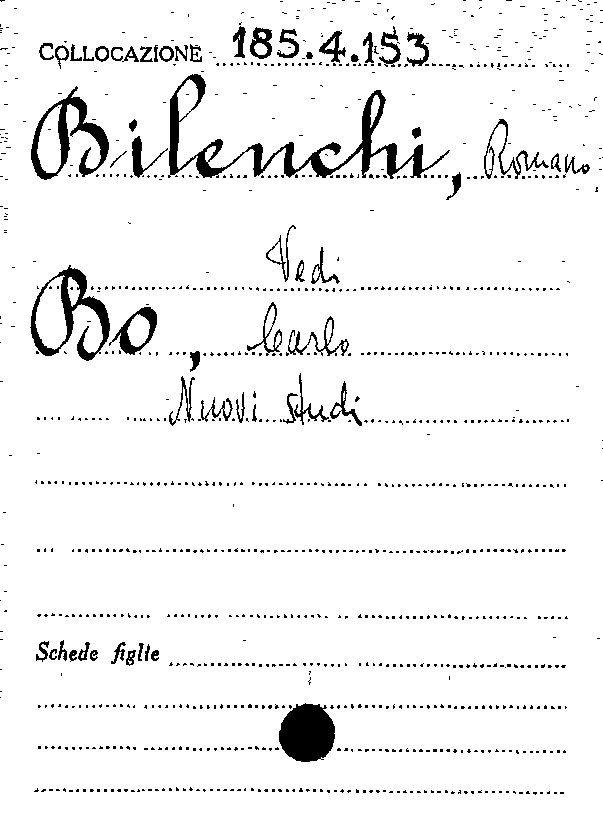 COLLOCAZIONE 185.4.153
Bilenchi, Romano
Vedi
Bo, Carlo
Nuovi studi
Schede figlie